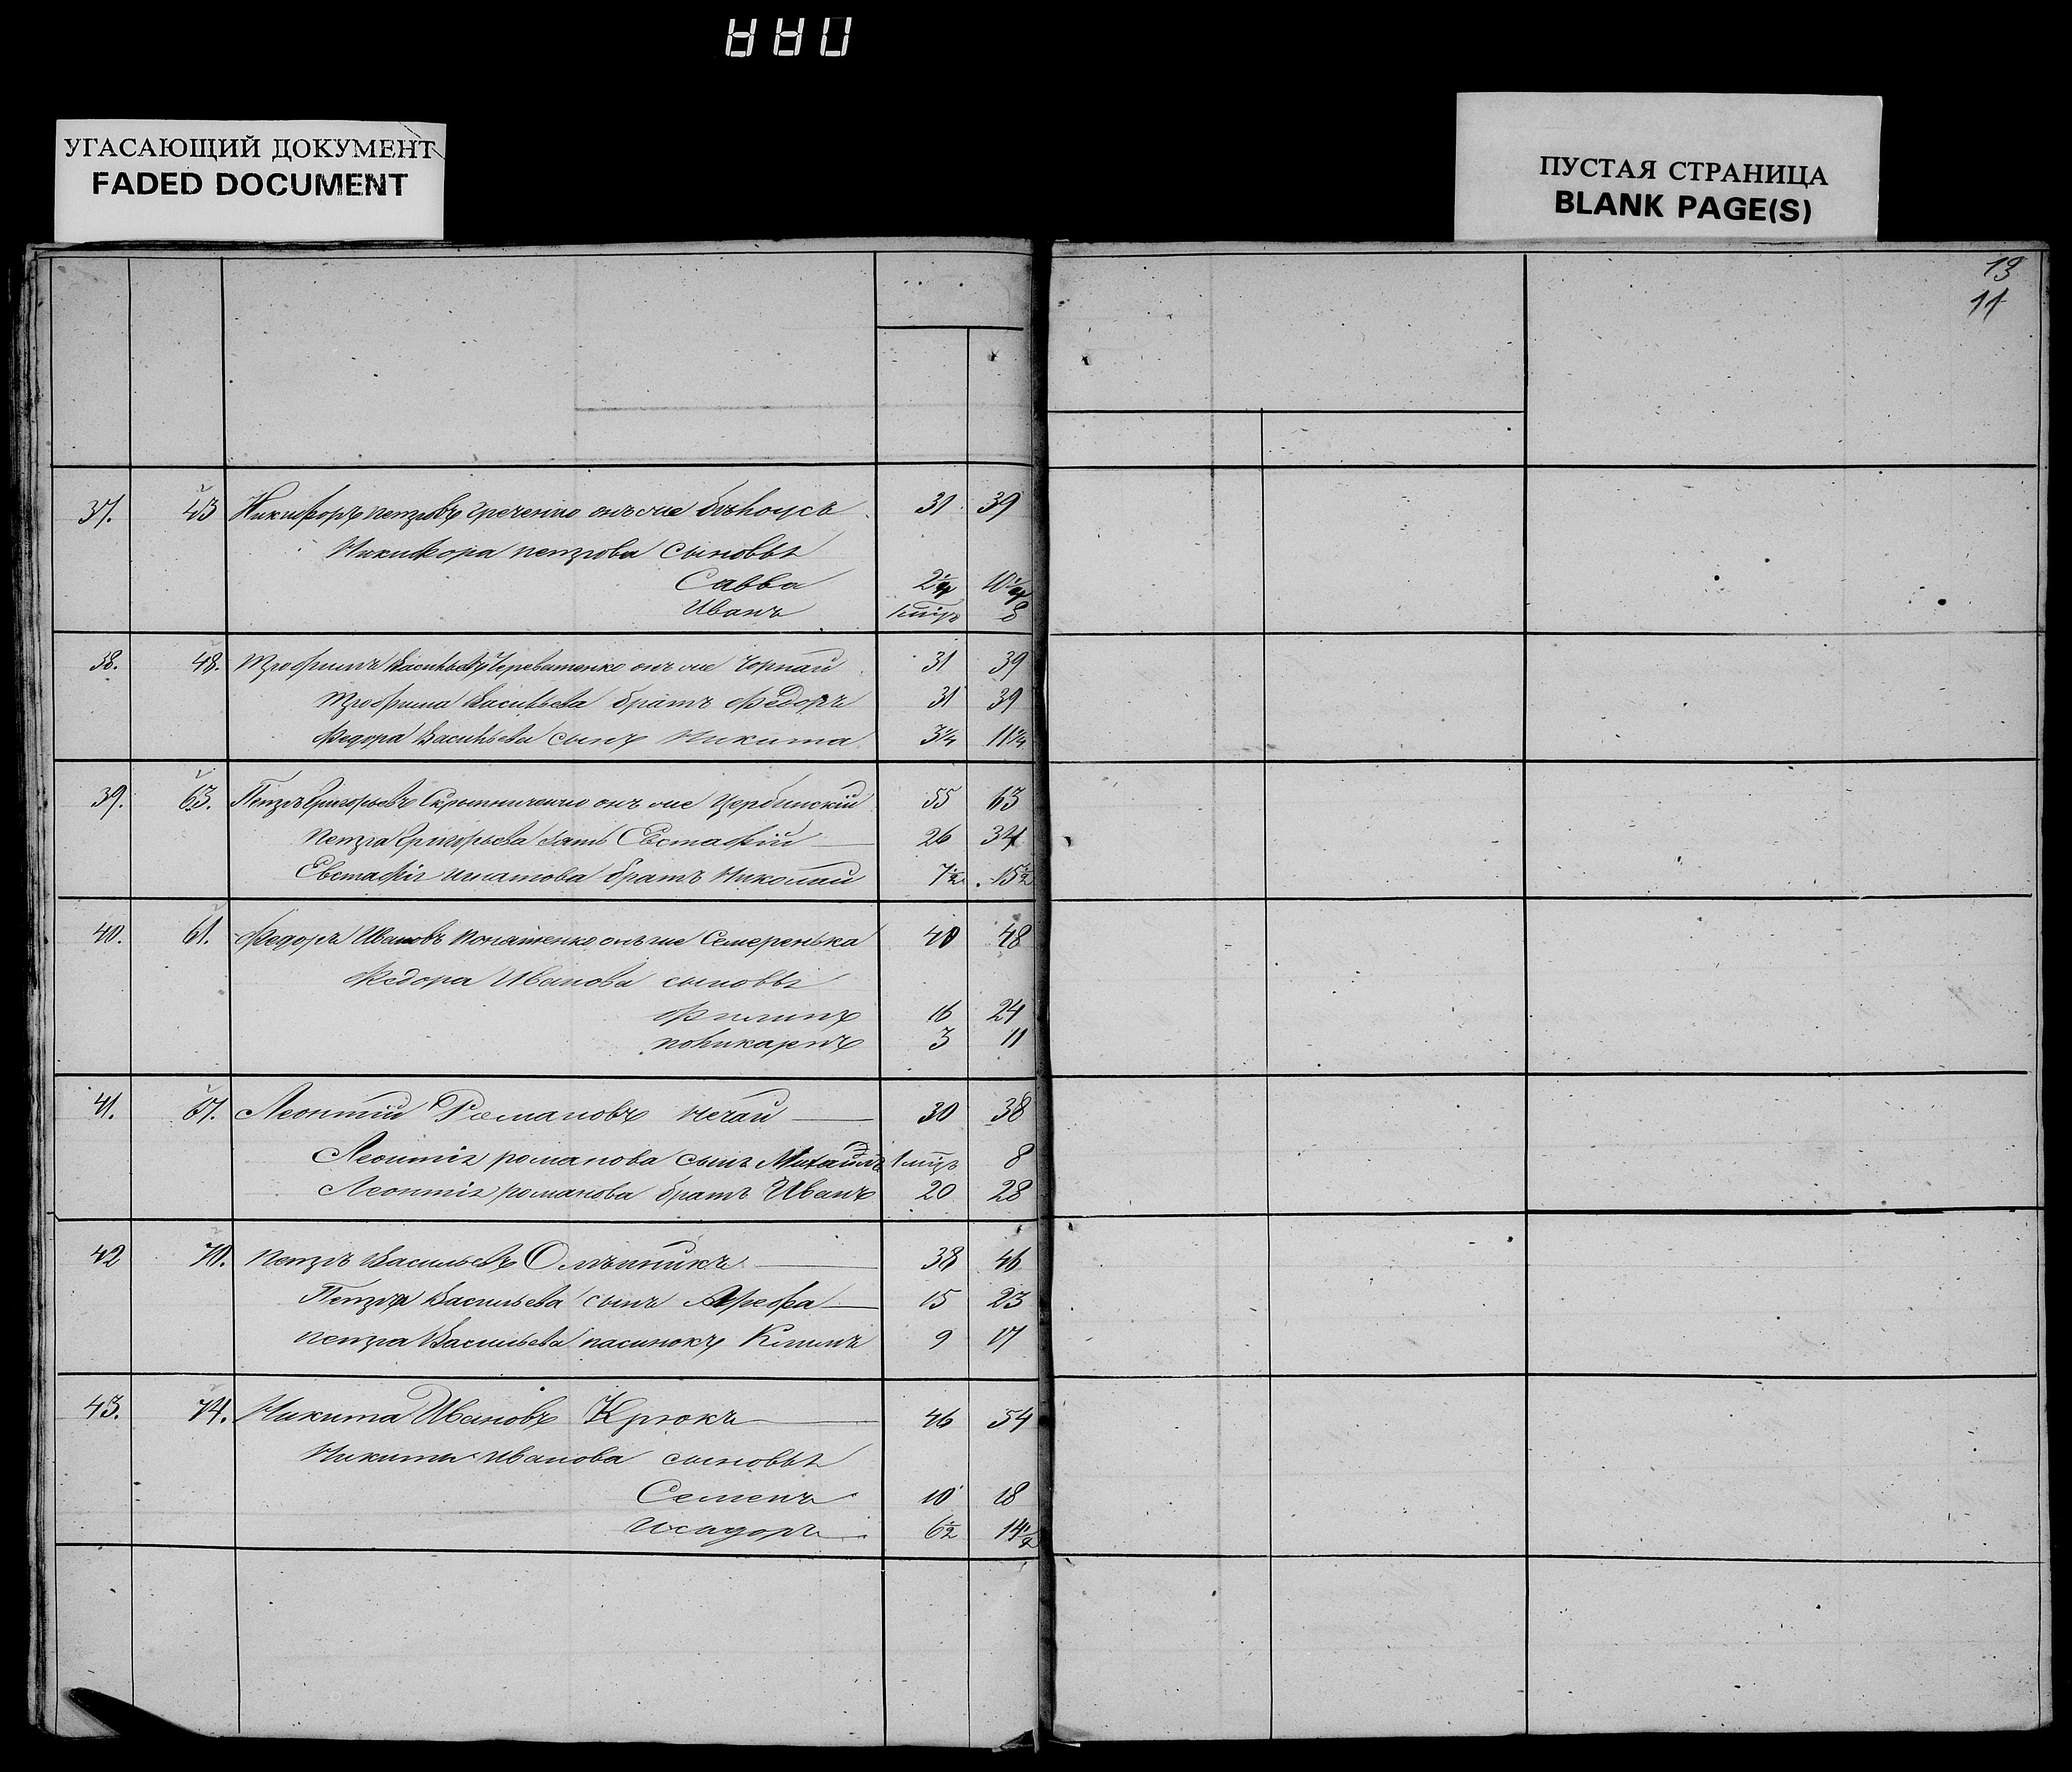 УГАСАЮЩИЙ ДОКУМЕНТ
FADED DOCUMENT
ПУСТАЯ СТРАНИЦА
BLANK PAGE(S)
13
11
37. 43 Никифоръ петровъ Греченко онъ же Бѣлоусъ 31 39
Никифора петрова сыновья
Савва 2¼ 10¼
Иванъ 8
38. 48. Трофимъ Васильевъ Череватенко онъ же Чорный 31 39
Трофима Васильева братъ Федоръ 31 39
Федора Васильева сынъ Никита 3¼ 11¼
39. 63. Петръ Григорьевъ онъ же 55 63
Петра Григорьева зять Евстафій 26 34
Евстафія игнатова братъ Николай 7½ 15½
40. 61. Федоръ Ивановъ онъ же Семеренька 40 48
Федора Иванова сыновья
Филипъ 16 24
поликарпъ 3 11
41. 67. Леонтій Романовъ Нечай 30 38
Леонтія романова сынъ Михаилъ 8
Леонтія романова братъ Иванъ 20 28
42 70. Петръ Васильевъ 38 46
Петра Васильева сынъ Арефа 15 23
петра Васильева пасинокъ Климъ 9 17
43. 74. Никита Ивановъ Крюкъ 46 54
Никиты иванова сыновья
Семенъ 10 18
Исидоръ 6½ 14½